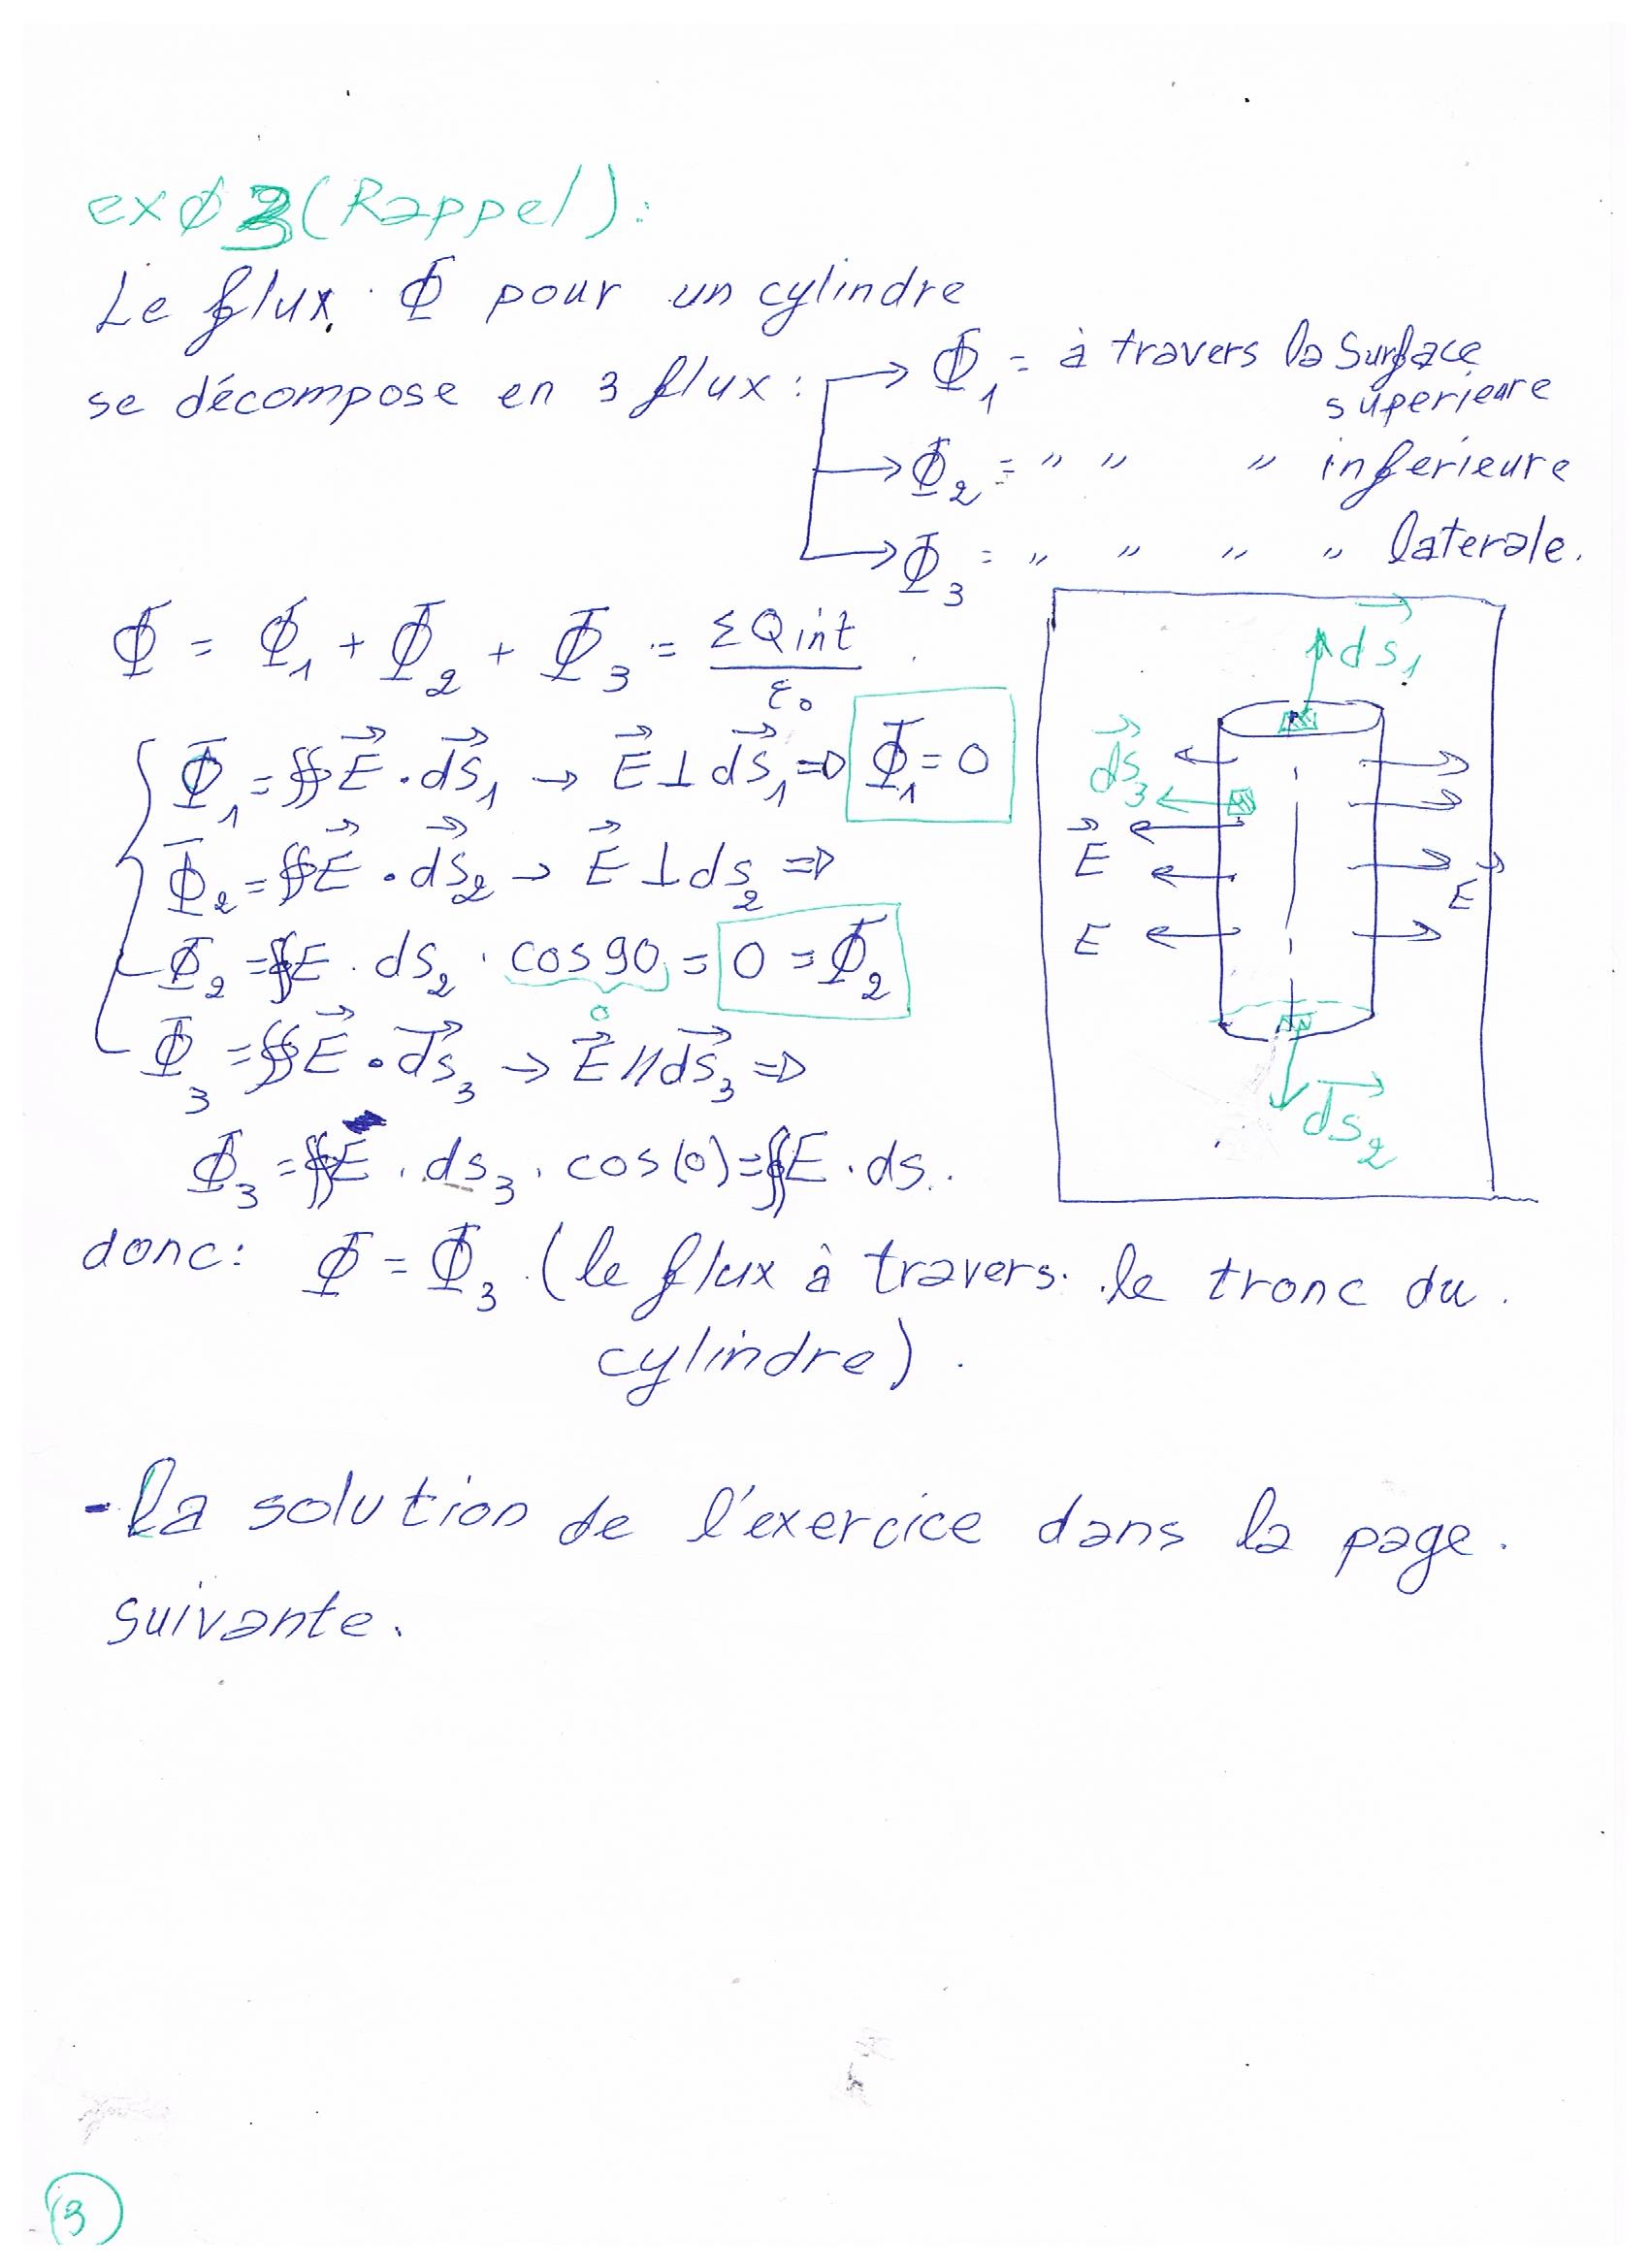 exo 3 (Rappel):
Le flux Φ pour un cylindre
se décompose en 3 flux : → Φ₁ = à travers la surface
supérieure
→ Φ₂ = " " " inferieure
→ Φ₃ = " " " " laterale.
Φ = Φ₁ + Φ₂ + Φ₃ = ΣQint / ε₀
Φ₁ = ∯ E⃗ . ds⃗₁ → E⃗ ⊥ ds⃗₁ ⇒ Φ₁ = 0
Φ₂ = ∯ E⃗ . ds⃗₂ → E⃗ ⊥ ds₂ ⇒
Φ₂ = ∯ E . ds₂ . cos 90 = 0 = Φ₂
0
Φ₃ = ∯ E⃗ . ds⃗₃ → E⃗ // ds⃗₃ ⇒
Φ₃ = ∯ E . ds₃ . cos(0) = ∯ E . ds.
donc : Φ = Φ₃ (le flux à travers le tronc du
cylindre).
ds⃗₁
ds⃗₃
E⃗
E⃗
E
ds⃗₂
- La solution de l'exercice dans la page
suivante.
3